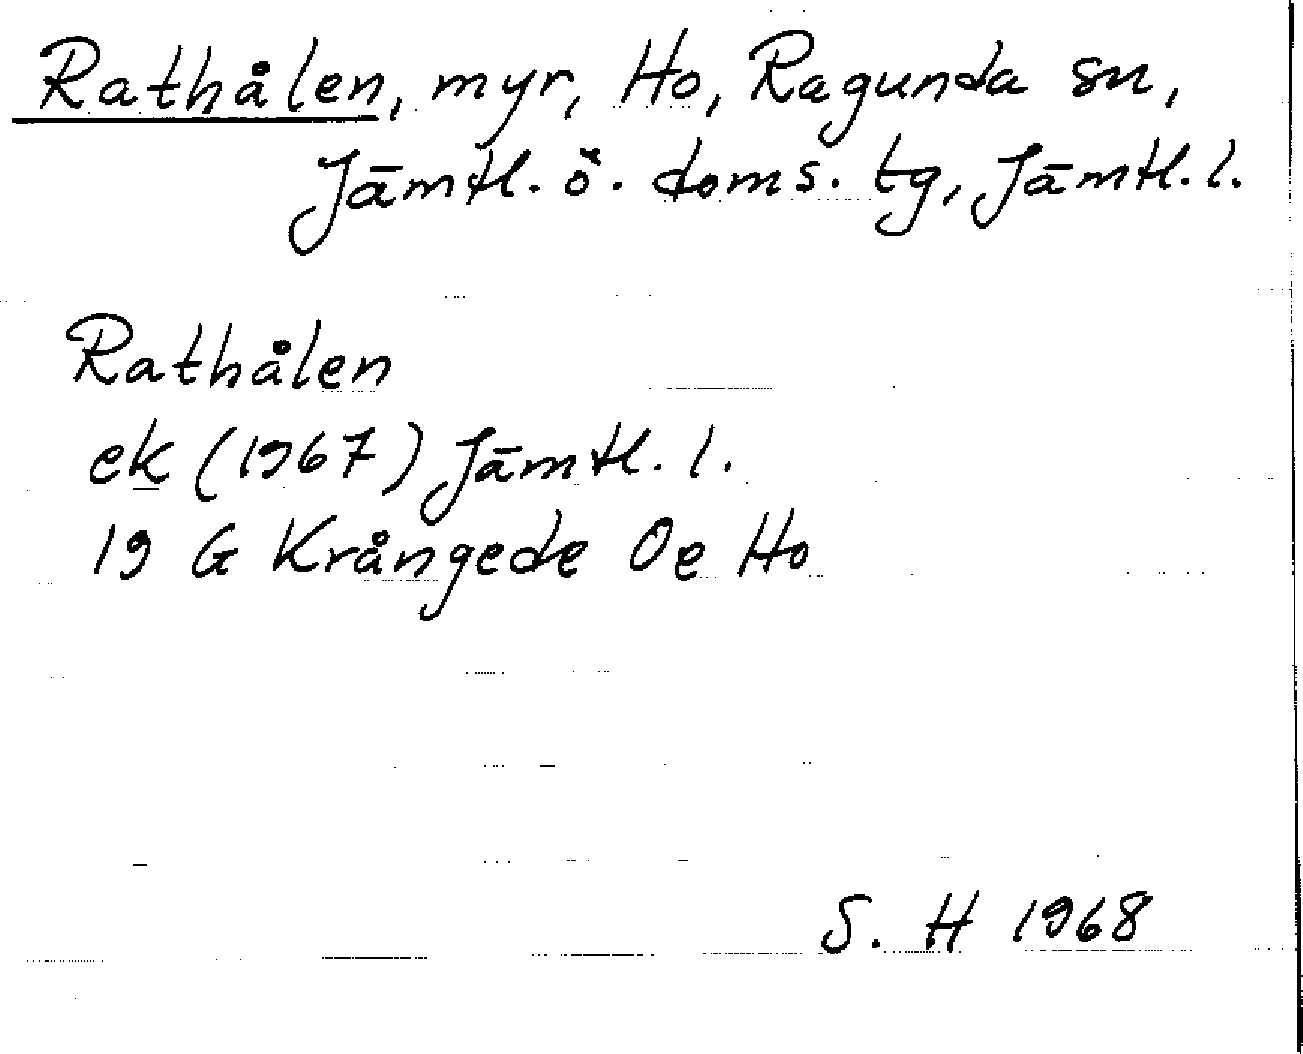 Rathålen, myr, Ho, Ragunda sn,
Jämtl. ö. doms. tg, Jämtl. l.
Rathålen
ek (1967) Jämtl. l.
19 G Krångede Oe Ho
S. H 1968